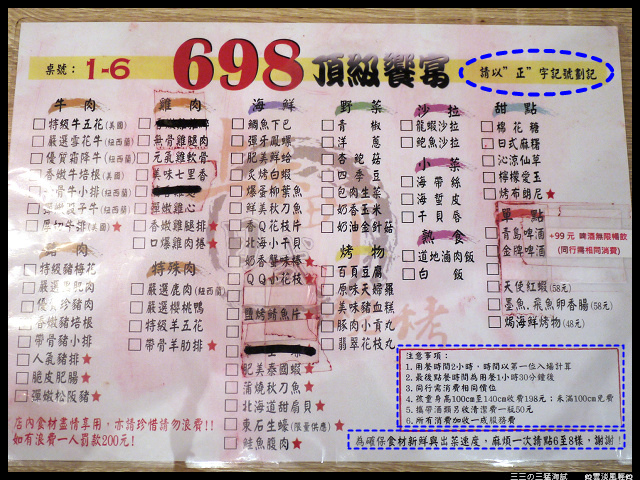 桌號: 1-6
698 頂級饗宴
請以"正"字記號劃記
牛肉
特級牛五花(美國)
嚴選雪花牛(紐西蘭)
優質霜降牛(紐西蘭)
香嫩牛培根(美國)
骨牛小排(紐西蘭)
子牛(紐西蘭)
厚切牛排(美國)★
豬肉
特級豬梅花
嚴選肥肉
優珍豬肉
香嫩豬培根
帶骨豬小排
人氣豬排★
脆皮肥腸★
彈嫩松阪豬★
雞肉
無骨雞腿肉
元氣雞軟骨
美味七里香
彈嫩雞心
香嫩雞腿排★
口爆雞肉捲★
特殊肉
嚴選鹿肉(紐西蘭)
嚴選櫻桃鴨
特級羊五花
帶骨羊肋排★
海鮮
鯛魚下巴
彈牙鳳螺
肥美鮮蛤
炙烤白蝦
爆蛋柳葉魚
鮮美秋刀魚
香Q花枝片
北海小干貝
奶香蟹味棒★
QQ小花枝★
鹽烤鯖魚片★
肥美泰國蝦★
蒲燒秋刀魚★
北海道甜扇貝★
東石生蠔(限量供應)★
鮭魚腹肉★
野菜
青椒
洋蔥
杏鮑菇
四季豆
包肉生菜
奶香玉米
奶油金針菇
烤物
百頁豆腐
原味天婦羅
美味豬血糕
豚肉小貢丸
翡翠花枝丸
沙拉
龍蝦沙拉
鮑魚沙拉
小菜
海帶絲
海蜇皮
干貝唇
熟食
道地滷肉飯
白飯
甜點
棉花糖
日式麻糬
沁涼仙草
檸檬愛玉
烤布朗尼★
單點
青島啤酒
金牌啤酒
+99元 啤酒無限暢飲
(同行需相同消費)
天使紅蝦(58元)
墨魚.飛魚卵香腸(58元)
焗海鮮烤物(48元)
注意事項:
1.用餐時間2小時,時間以第一位入場計算
2.最後點餐時間為用餐1小時30分鐘後
3.同行需消費相同價位
4.孩童身高100cm至140cm收費198元;未滿100cm免費
5.攜帶酒類另收清潔費一瓶50元
6.所有消費加收一成服務費
店內食材盡情享用,亦請珍惜請勿浪費!!
如有浪費一人罰款200元!
為確保食材新鮮與出菜速度,麻煩一次請點6至8樣,謝謝!
三三の三猛海賊 @雲淡風輕@